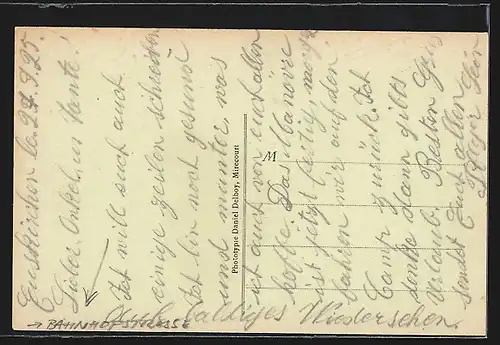 Euskirchen la. 27.9.25.
Lieber Onkel un Tante!
Ich will euch auch
einige zeilen schreiben
Ich bin noch gesund
und munter, was
ich auch von euch allen
hoffe. Das Manövre
ist jetzt fertig, morgen
fahren wir auf den
Camp zurück. Ich
denke dann gilts
Urlaub. Besten Grus
sendet Euch allen
Auf baldiges Wiedersehen.
→ BAHNHOFSTRASSE
M
Phototypie Daniel Delboy, Mirecourt